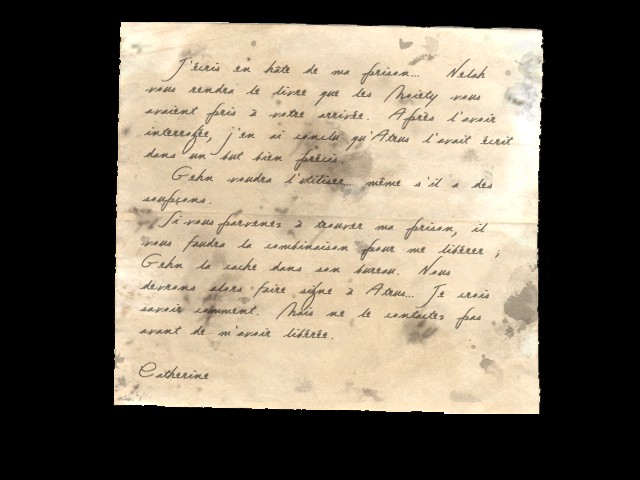 J'écris en hâte de ma prison... Nelah
vous rendra le livre que les Moiety vous
avaient pris à votre arrivée. Après l'avoir
interrogée, j'en ai conclu qu'Atrus l'avait écrit
dans un but bien précis.
Gehn voudra l'utiliser... même s'il a des
soupçons.
Si vous parvenez à trouver ma prison, il
vous faudra la combinaison pour me libérer ;
Gehn la cache dans son bureau. Nous
devrons alors faire signe à Atrus... Je crois
savoir comment. Mais ne le contactez pas
avant de m'avoir libérée.
Catherine